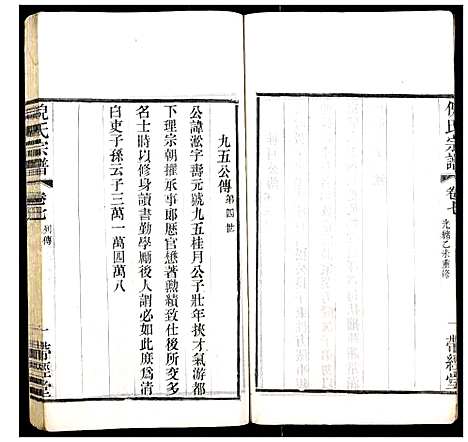 倪氏宗譜
卷七
光緒乙未重修
一
帶經堂
九五公傳 第四世
公諱淞字壽元號九五桂月公子壯年挾才氣游都
下理宗朝擢承事郎歷官懋著勲績致仕後所交多
名士時以修身讀書勤學勵後人謂必如此庶為清
白吏子孫云子三萬一萬四萬八
倪氏宗譜
卷七
列傳
一
帶經堂